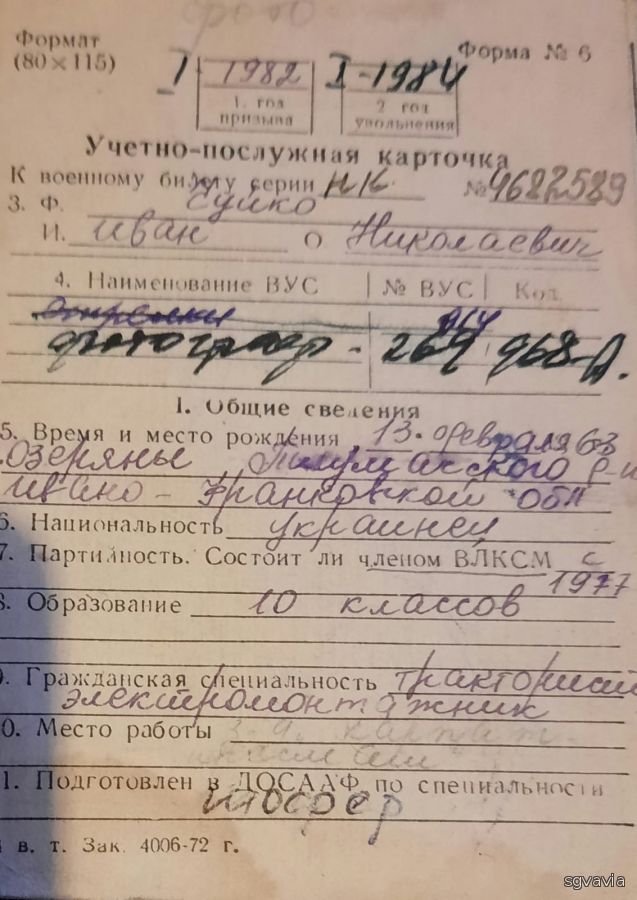 фото
Формат
(80×115)
Форма № 6
I 1982 I-1984
1. год призыва
2. год увольнения
Учетно-послужная карточка
К военному билету серии НК №4682589
3. Ф. Суйко
И. Иван О Николаевич
4. Наименование ВУС № ВУС Код
964
фотограф - 269 968-А.
I. Общие сведения
5. Время и место рождения 13. февраля 63
Озеряны Тлумакского р-н
Ивано-Франковской обл
6. Национальность украинец
7. Партийность. Состоит ли членом ВЛКСМ с
1977
8. Образование 10 классов
9. Гражданская специальность тракторист
электромонтажник
10. Место работы
11. Подготовлен в ДОСААФ по специальности
шофер
в. т. Зак. 4006-72 г.
sgvavia